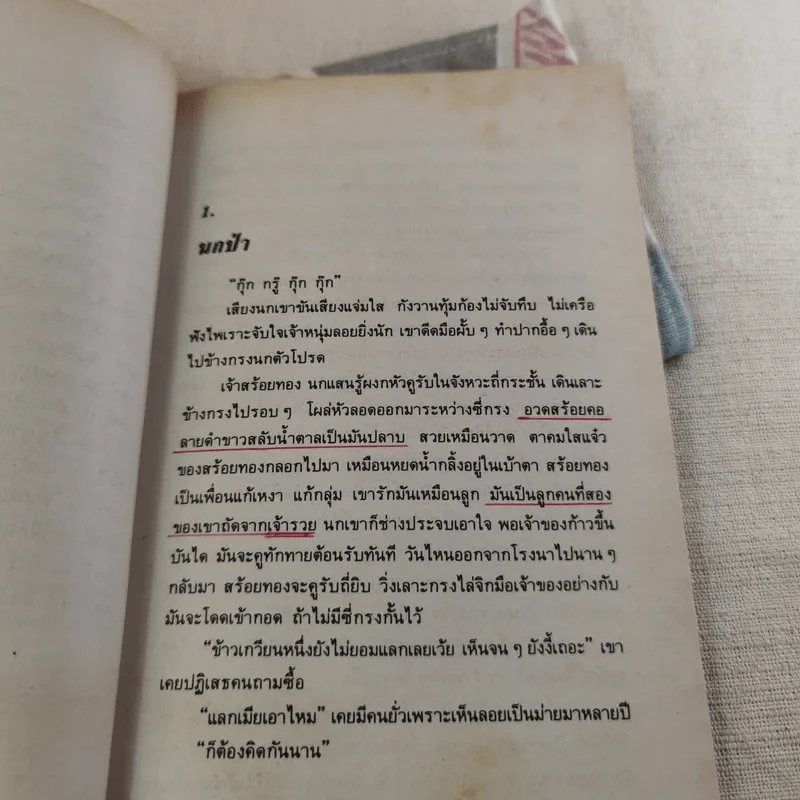 1.
นกป่า
“กุ๊ก กรู๊ กุ๊ก กุ๊ก”
เสียงนกเขาขันเสียงแจ่มใส กังวานทุ้มก้องไม่จับทึบ ไม่เครือ
ฟังไพเราะจับใจเจ้าหนุ่มลอยยิ่งนัก เขาดีดมือผั้บ ๆ ทำปากอื้อ ๆ เดิน
ไปข้างกรงนกตัวโปรด
เจ้าสร้อยทอง นกแสนรู้ผงกหัวคูรับในจังหวะถี่กระชั้น เดินเลาะ
ข้างกรงไปรอบ ๆ โผล่หัวลอดออกมาระหว่างซี่กรง อวดสร้อยคอ
ลายดำขาวสลับน้ำตาลเป็นมันปลาบ สวยเหมือนวาด ตาคมใสแจ๋ว
ของสร้อยทองกลอกไปมา เหมือนหยดน้ำกลิ้งอยู่ในเบ้าตา สร้อยทอง
เป็นเพื่อนแก้เหงา แก้กลุ่ม เขารักมันเหมือนลูก มันเป็นลูกคนที่สอง
ของเขาถัดจากเจ้ารวย นกเขาก็ช่างประจบเอาใจ พอเจ้าของก้าวขึ้น
บันได มันจะคูทักทายต้อนรับทันที วันไหนออกจากโรงนาไปนาน ๆ
กลับมา สร้อยทองจะคูรับถี่ยิบ วิ่งเลาะกรงไล่จิกมือเจ้าของอย่างกับ
มันจะโดดเข้ากอด ถ้าไม่มีซี่กรงกั้นไว้
“ข้าวเกวียนหนึ่งยังไม่ยอมแลกเลยเว้ย เห็นจน ๆ ยังงี้เถอะ” เขา
เคยปฏิเสธคนถามซื้อ
“แลกเมียเอาไหม” เคยมีคนยั่วเพราะเห็นลอยเป็นม่ายมาหลายปี
“ก็ต้องคิดกันนาน”